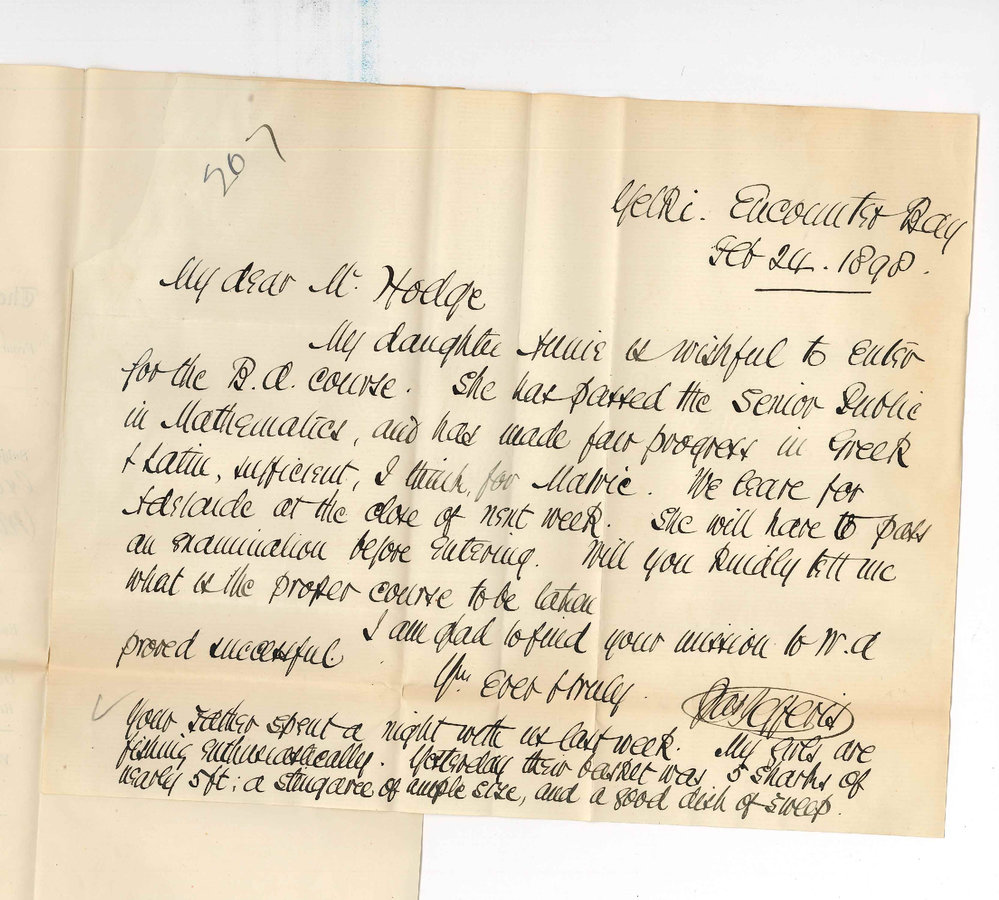 207
Yelki. Encounter Bay
Feb 24. 1898.
My dear Mr. Hodge
My daughter Annie is wishful to enter
for the B.A. course. She has passed the Senior Public
in Mathematics, and has made fair progress in Greek
& Latin, sufficient, I think, for Matric. We leave for
Adelaide at the close of next week. She will have to pass
an examination before entering. Will you kindly tell me
what is the proper course to be taken
I am glad to find your mission to W.A
proved successful.
Yrs. Ever truly.
Jas Jefferis
Your Father spent a night with us last week. My girls are
fishing enthusiastically. Yesterday their basket was 5 sharks of
nearly 5ft: a stingaree of ample size, and a good dish of sweep.